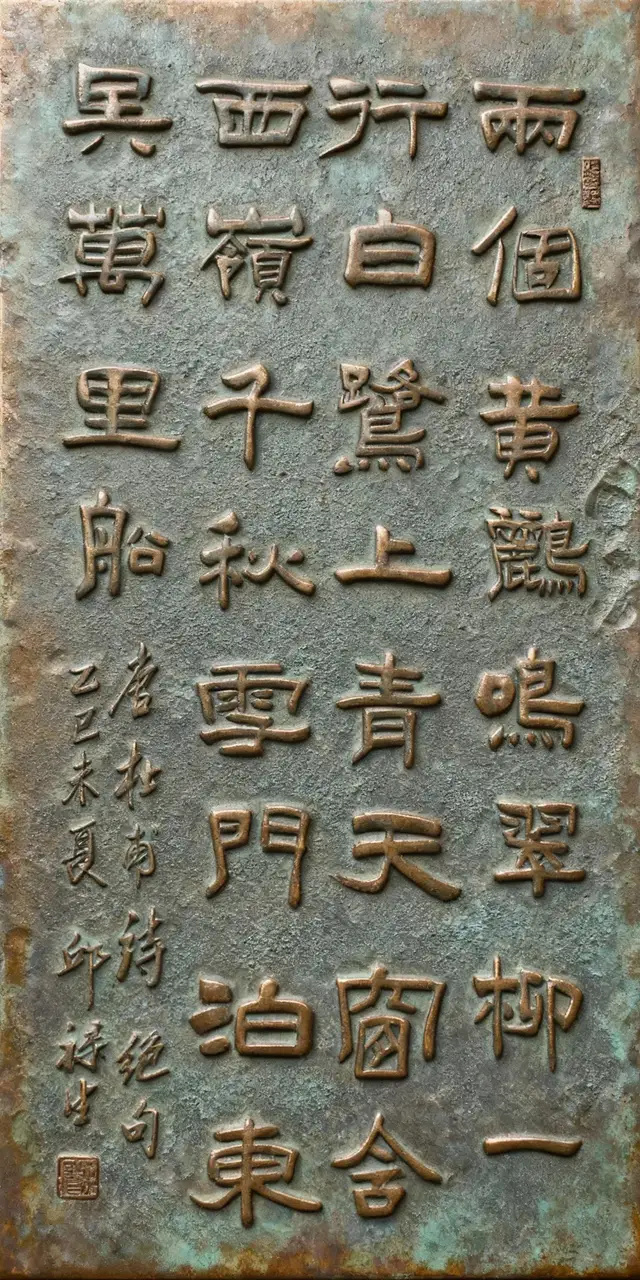 兩個黃鸝鳴翠柳一
行白鷺上青天窗含
西嶺千秋雪門泊東
吴萬里船
唐杜甫诗絕句
乙巳未夏邱禄生